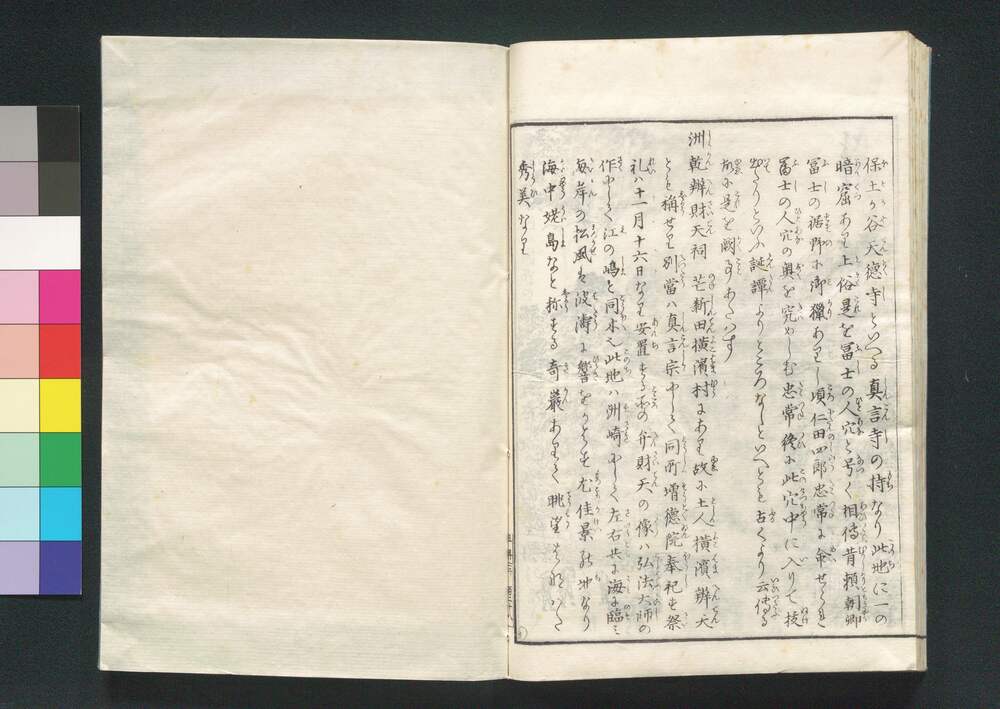 保土ケ谷天徳寺といへる真言寺の持なり此地に一の
暗窟あり土俗是を冨士の人穴と号く相傳昔頼朝卿
冨士の裾野に御獵ありし頃仁田四郎忠常に命せられ
冨士の人穴の奥を究めしむ忠常終に此穴中に入りて技
出たりといふ誕譚よりところなしといへとも古くより云傳る
故に是を闕事あたはす
洲乾辨財天祠 芒新田横濱村にあり故に土人横濱辨天
とも称せり別當は真言宗にして同所増徳院奉祀す祭
礼ハ十一月十六日なり安置する所の弁財天の像ハ弘法大師の
作にして江の嶋と同木也此地ハ洲崎にして左右共に海に臨ミ
海岸の松風は波濤に響をかはす尤佳景の地なり
海中姥島なと称する奇巌ありて眺望すこふる
秀美なり